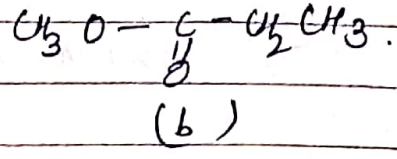 CH3 O — C — CH2 CH3.
||
O
(b)